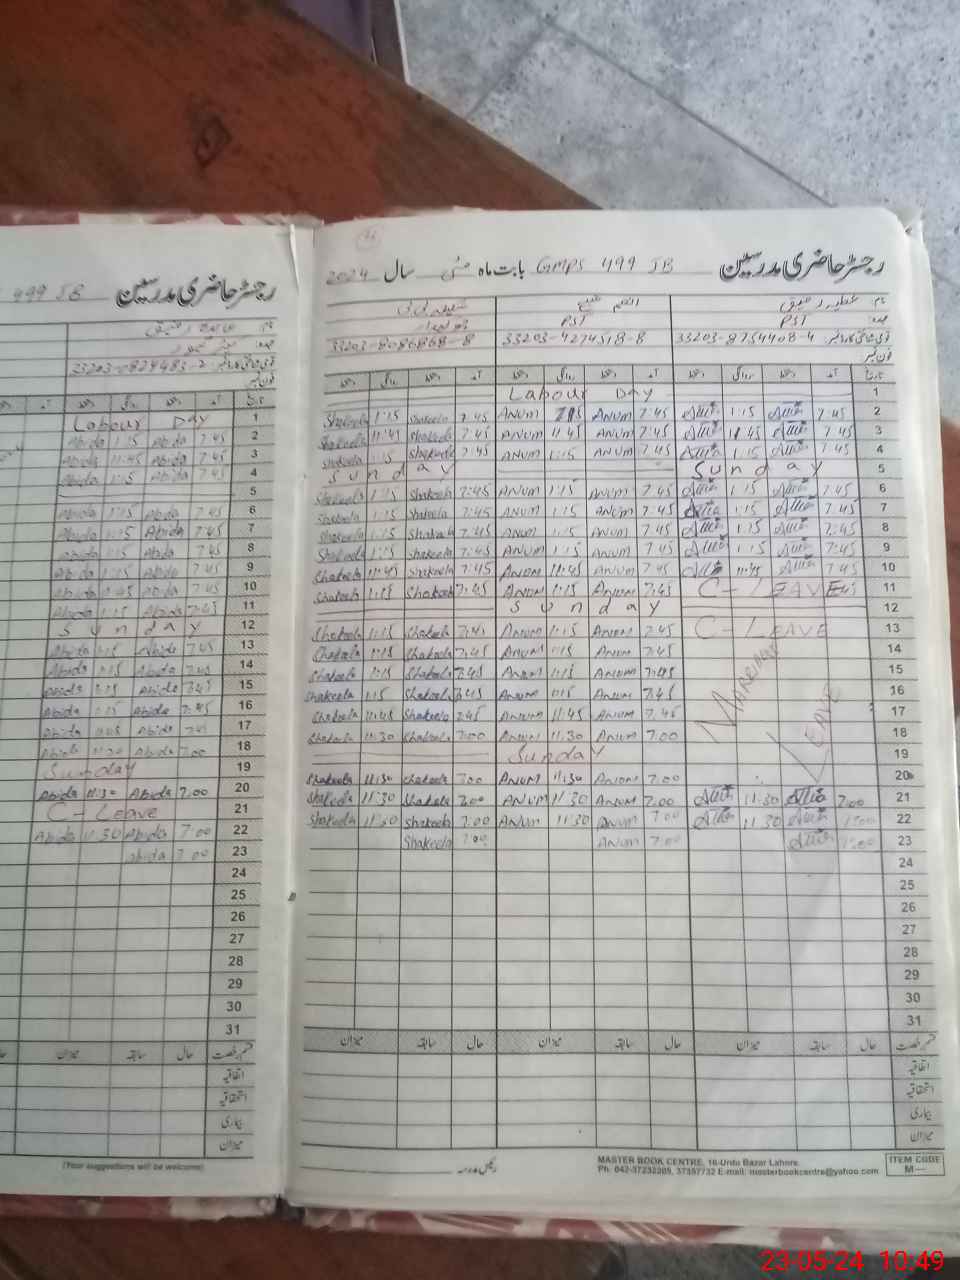 499 JB رجسٹر حاضری مدرسین
نام:
عہدہ:
قومی شناختی کارڈ نمبر: 33203-0829483-2
فون نمبر
تاریخ آمد دستخط روانگی دستخط آمد
1 Labour Day
2 7:45 Abida 1:15 Abida
3 7:45 Abida 11:45 Abida
4 7:45 Abida 1:15 Abida
5
6 7:45 Abida 1:15 Abida
7 7:45 Abida 1:15 Abida
8 7:45 Abida 1:15 Abida
9 7:45 Abida 1:15 Abida
10 7:45 Abida 11:45 Abida
11 7:45 Abida 1:15 Abida
12 Sunday
13 7:45 Abida 1:15 Abida
14 7:45 Abida 1:15 Abida
15 7:45 Abida 1:15 Abida
16 7:45 Abida 1:15 Abida
17 7:45 Abida 11:45 Abida
18 7:00 Abida 11:30 Abida
19 Sunday
20 7:00 Abida 11:30 Abida
21 C-Leave
22 7:00 Abida 11:30 Abida
23 7:00 Abida
24
25
26
27
28
29
30
31
قسم رخصت حال سابقہ میزان
اتفاقیہ
استحقاقیہ
بیماری
میزان
(Your suggestions will be welcome)
رجسٹر حاضری مدرسین GMPS 499 JB بابت ماہ مئی سال 2024
نام:
عہدہ: PST PST
قومی شناختی کارڈ نمبر: 33203-8754408-4 33203-4274518-8 33203-8086868-8
فون نمبر
تاریخ آمد دستخط روانگی دستخط آمد دستخط روانگی دستخط آمد دستخط روانگی دستخط
1 Labour Day
2 7:45 1:15 7:45 Anum 1:15 Anum 7:45 Shakeela 1:15 Shakeela
3 7:45 11:45 7:45 Anum 11:45 Anum 7:45 Shakeela 11:45 Shakeela
4 7:45 1:15 7:45 Anum 1:15 Anum 7:45 Shakeela 1:15 Shakeela
5 Sunday Sunday
6 7:45 1:15 7:45 Anum 1:15 Anum 7:45 Shakeela 1:15 Shakeela
7 7:45 1:15 7:45 Anum 1:15 Anum 7:45 Shakeela 1:15 Shakeela
8 7:45 1:15 7:45 Anum 1:15 Anum 7:45 Shakeela 1:15 Shakeela
9 7:45 1:15 7:45 Anum 1:15 Anum 7:45 Shakeela 1:15 Shakeela
10 7:45 11:45 7:45 Anum 11:45 Anum 7:45 Shakeela 11:45 Shakeela
11 C-LEAVE 7:45 Anum 1:15 Anum 7:45 Shakeela 1:15 Shakeela
12 Sunday
13 C-LEAVE 7:45 Anum 1:15 Anum 7:45 Shakeela 1:15 Shakeela
14 7:45 Anum 1:15 Anum 7:45 Shakeela 1:15 Shakeela
15 7:45 Anum 1:15 Anum 7:45 Shakeela 1:15 Shakeela
16 7:45 Anum 1:15 Anum 7:45 Shakeela 1:15 Shakeela
17 7:45 Anum 11:45 Anum 7:45 Shakeela 11:45 Shakeela
18 7:00 Anum 11:30 Anum 7:00 Shakeela 11:30 Shakeela
MARRIAGE LEAVE
19 Sunday
20 7:00 Anum 11:30 Anum 7:00 Shakeela 11:30 Shakeela
21 7:00 11:30 7:00 Anum 11:30 Anum 7:00 Shakeela 11:30 Shakeela
22 11:30 7:00 Anum 11:30 Anum 7:00 Shakeela 11:30 Shakeela
23 7:00 Anum 7:00 Shakeela
24
25
26
27
28
29
30
31
قسم رخصت حال سابقہ میزان حال سابقہ میزان حال سابقہ میزان
اتفاقیہ
استحقاقیہ
بیماری
میزان
MASTER BOOK CENTRE, 16-Urdu Bazar Lahore.
Ph. 042-37232209, 37357732 E-mail: masterbookcentre@yahoo.com
ITEM CODE
M—
23-05-24 10:49